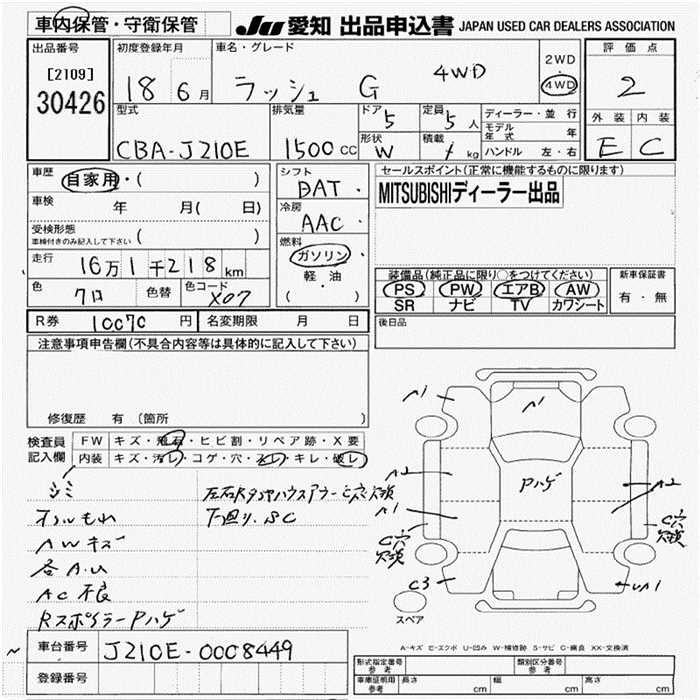 車内保管・守衛保管
JU 愛知 出品申込書 JAPAN USED CAR DEALERS ASSOCIATION
出品番号
[2109]
30426
初度登録年月
18 6月
車名・グレード
ラッシュ G 4WD
2WD
4WD
評価点
2
外装 内装
E C
型式
CBA-J210E
排気量
1500 CC
ドア
5
定員
5人
形状
W
積載
kg
ディーラー・並行
モデル年式 年
ハンドル 左・右
車歴
自家用・( )
車検
年 月( 日)
受検形態
車検付きのみ記入して下さい ( )
走行
16万1千218km
色
クロ
色替
色コード
X07
シフト
DAT
冷房
AAC
燃料
ガソリン
軽・油
( )
セールスポイント(正常に機能するものに限ります)
MITSUBISHIディーラー出品
装備品(純正品に限り○をつけてください)
PS PW エアB AW
SR ナビ TV カワシート
新車保証書
有・無
R券 10070円 名変期限 月 日
後日品
注意事項申告欄(不具合内容等は具体的に記入して下さい)
修復歴 有 (箇所 )
検査員
記入欄
FW キズ・飛石・ヒビ割・リペア跡・X要
内装 キズ・汚レ・コゲ・穴・スレ・キレ・破レ
シミ
オイルもれ
AWキズ
各A.U
AC不良
Rスポイラー Pハゲ
下廻り.SC
A1
A1
Pハゲ
A2
A1
C穴
欠損
C3
A2
C穴
欠損
UA1
スペア
A-キズ E-エクボ U-凹み W-補修跡 S-サビ C-腐食 XX-交換済
車台番号 J210E-0008449
登録番号
形式指定番号
参考
類別区分番号
参考
車庫証明用
参考
長さ cm 幅 cm 高さ cm